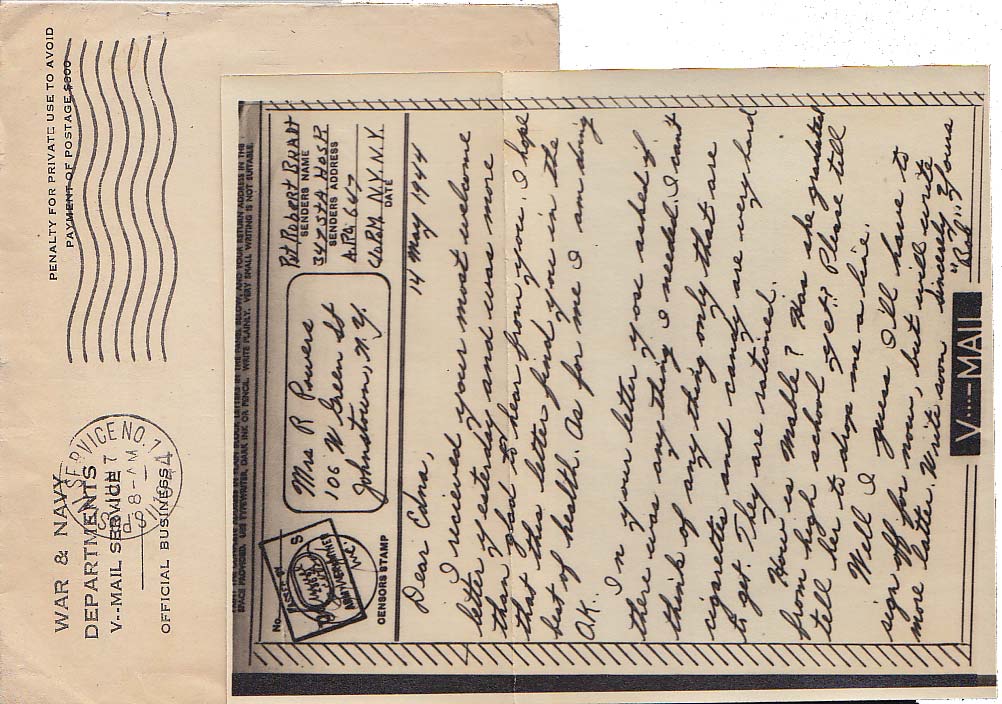 WAR & NAVY
DEPARTMENTS
V--MAIL SERVICE
OFFICIAL BUSINESS
PENALTY FOR PRIVATE USE TO AVOID
PAYMENT OF POSTAGE $300
NO. 1
8-AM
1944
SPACE PROVIDED. USE TYPEWRITER, DARK INK OR PENCIL. WRITE PLAINLY. VERY SMALL WRITING IS NOT SUITABLE.
No.
CENSORS STAMP
PASSED BY
ARMY EXAMINER
Mrs R Powers
106 W Green St
Johnstown, N.Y.
Pvt Robert
SENDERS NAME
347 STA HOSP
SENDERS ADDRESS
A.P.O. 647
C/o P.M. N.Y. N.Y.
DATE
14 May 1944
Dear Edna,
I recieved your most welcome
letter yesterday and was more
than glad to hear from you. I hope
that this letter find you in the
best of health. As for me I am doing
O.K.
In your letter you asked if
there was anything I needed. I can't
think of anything only that are
cigarettes and candy are very hard
to get. They are rationed.
How is Mable? Has she graduated
from high school yet? Please tell
tell her to drop me a line.
Well I guess I'll have to
sign off for now, but will write
more later. Write soon
Sincerely Yours
"Bob"
V···—MAIL